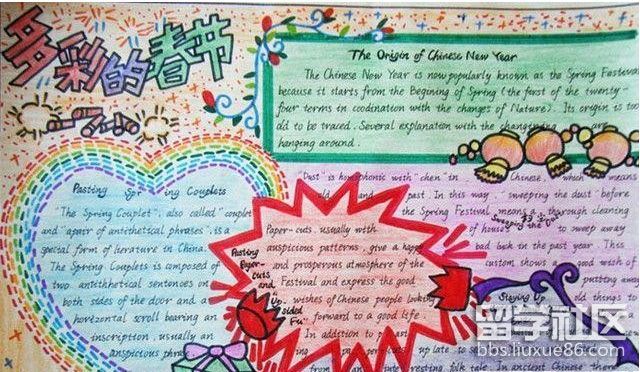 多彩的春节
The Origin of Chinese New Year
The Chinese New Year is now popularly known as the Spring Festival
because it starts from the Begining of Spring (the first of the twenty-
four terms in coodination with the changes of Nature). Its origin is too
old to be traced. Several explanation with the are
hanging around.
Pasting Spr ing Couplets
"The Spring Couplet", also called "couplet
and "a pair of antithetical phrases", is a
special form of literature in China.
The Spring Couplets is composed of
two antithetical sentences on
both sides of the door and a
horizontal scroll bearing an
inscription, usually an
anspicious phrase.
Pasting
Paper-
cuts
and
Up
sided
Fu"
Paper-cuts, usually with
auspicious patterns, give a happy
and prosperous atmosphere of the
Festival and express the good
wishes of Chinese people looking
forward to a good life.
In addition to
Sweeping the Dust
"Dust" is homophonic with "chen" in Chinese, which means
old and past. In this way, "sweeping the dust" before
the Spring Festival means a thorough cleaning
of houses to sweep away
bad luck in the past year. This
custom shows a good wish of
putting away
old things
Staying Up
up late to
interesting folk tale. In ancient Chinese there
留学社区
bbs.liuxue86.com